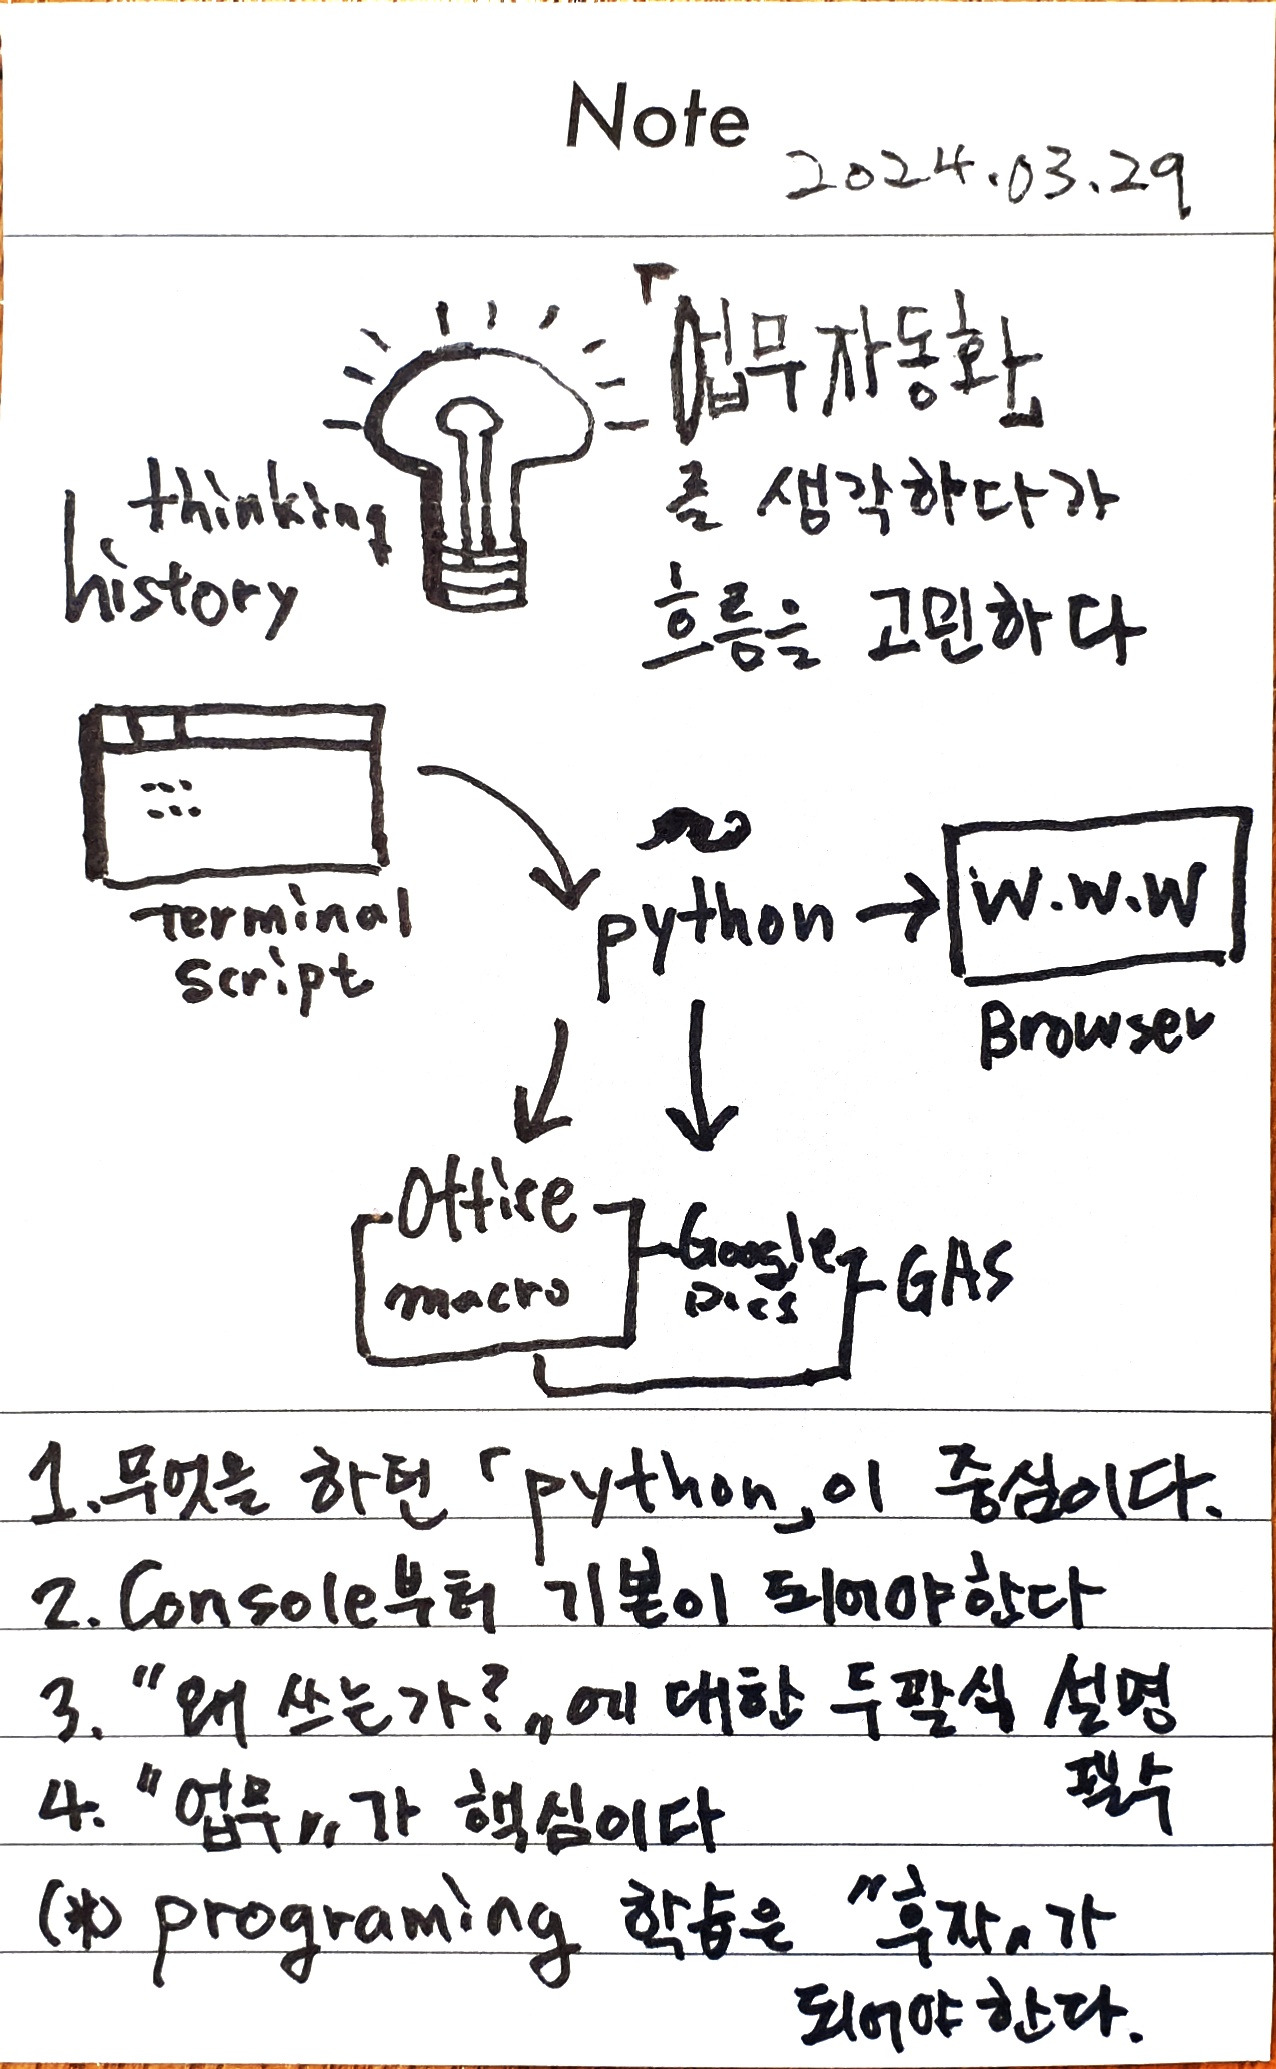 Note
2024.03.29
「업무자동화」
를 생각하다가
흐름을 고민하다
thinking
history
Terminal
script
python
W.W.W
Browser
Office
macro
Google
Docs
GAS
1. 무엇을 하던 「python」이 중심이다.
2. Console부터 기본이 되어야한다
3. "왜 쓰는가?"에 대한 두괄식 설명
필수
4. "업무"가 핵심이다
(*) programing 학습은 "후자"가
되어야 한다.